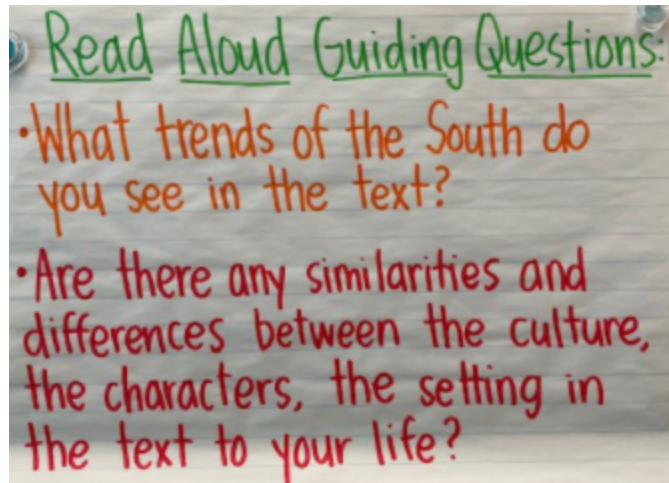 Read Aloud Guiding Questions:
•What trends of the South do
you see in the text?
•Are there any similarities and
differences between the culture,
the characters, the setting in
the text to your life?